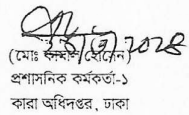 (মোঃ কামাল হোসেন)
প্রশাসনিক কর্মকর্তা-১
কারা অধিদপ্তর, ঢাকা